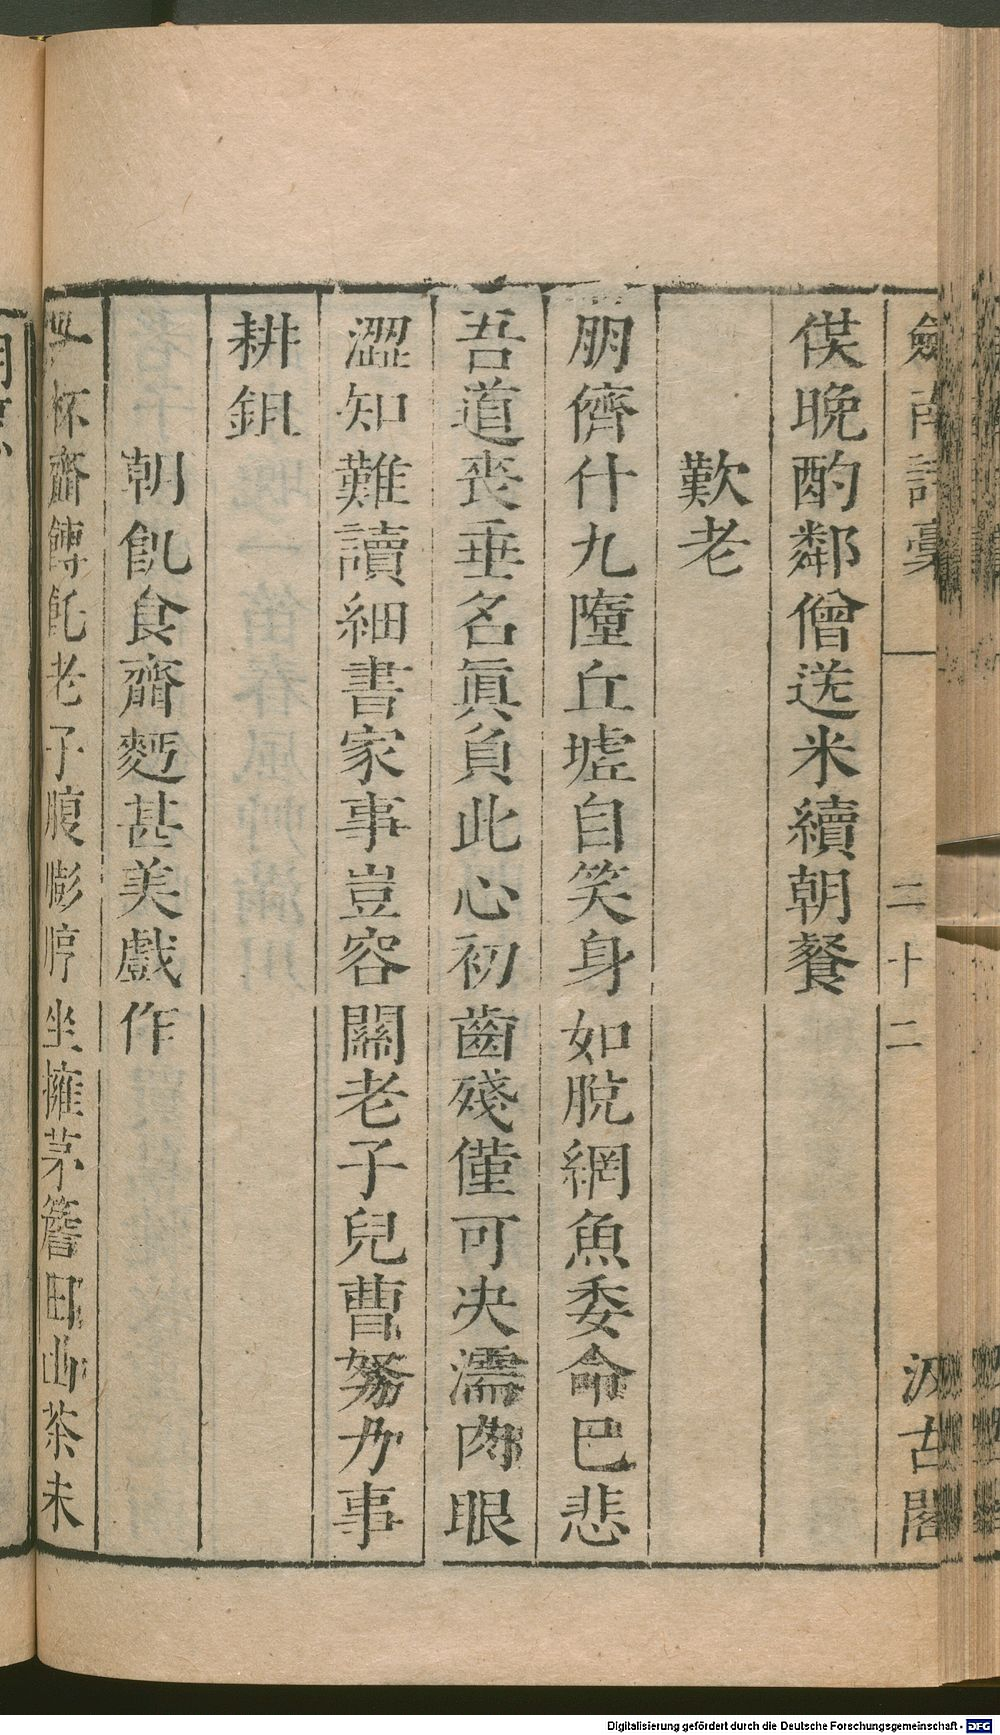 劒南詩稾 二十二 汲古閣
俟晚酌鄰僧送米續朝餐
歎老
朋儕什九墮丘墟自笑身如脫網魚委命已悲
吾道喪垂名眞負此心初齒殘僅可决濡肉眼
澀知難讀細書家事豈容關老子兒曹努力事
耕鉏
朝飢食齏麪甚美戲作
一杯齏餺飥老子腹膨脝坐擁茅簷日山茶未
Digitalisierung gefördert durch die Deutsche Forschungsgemeinschaft - DFG